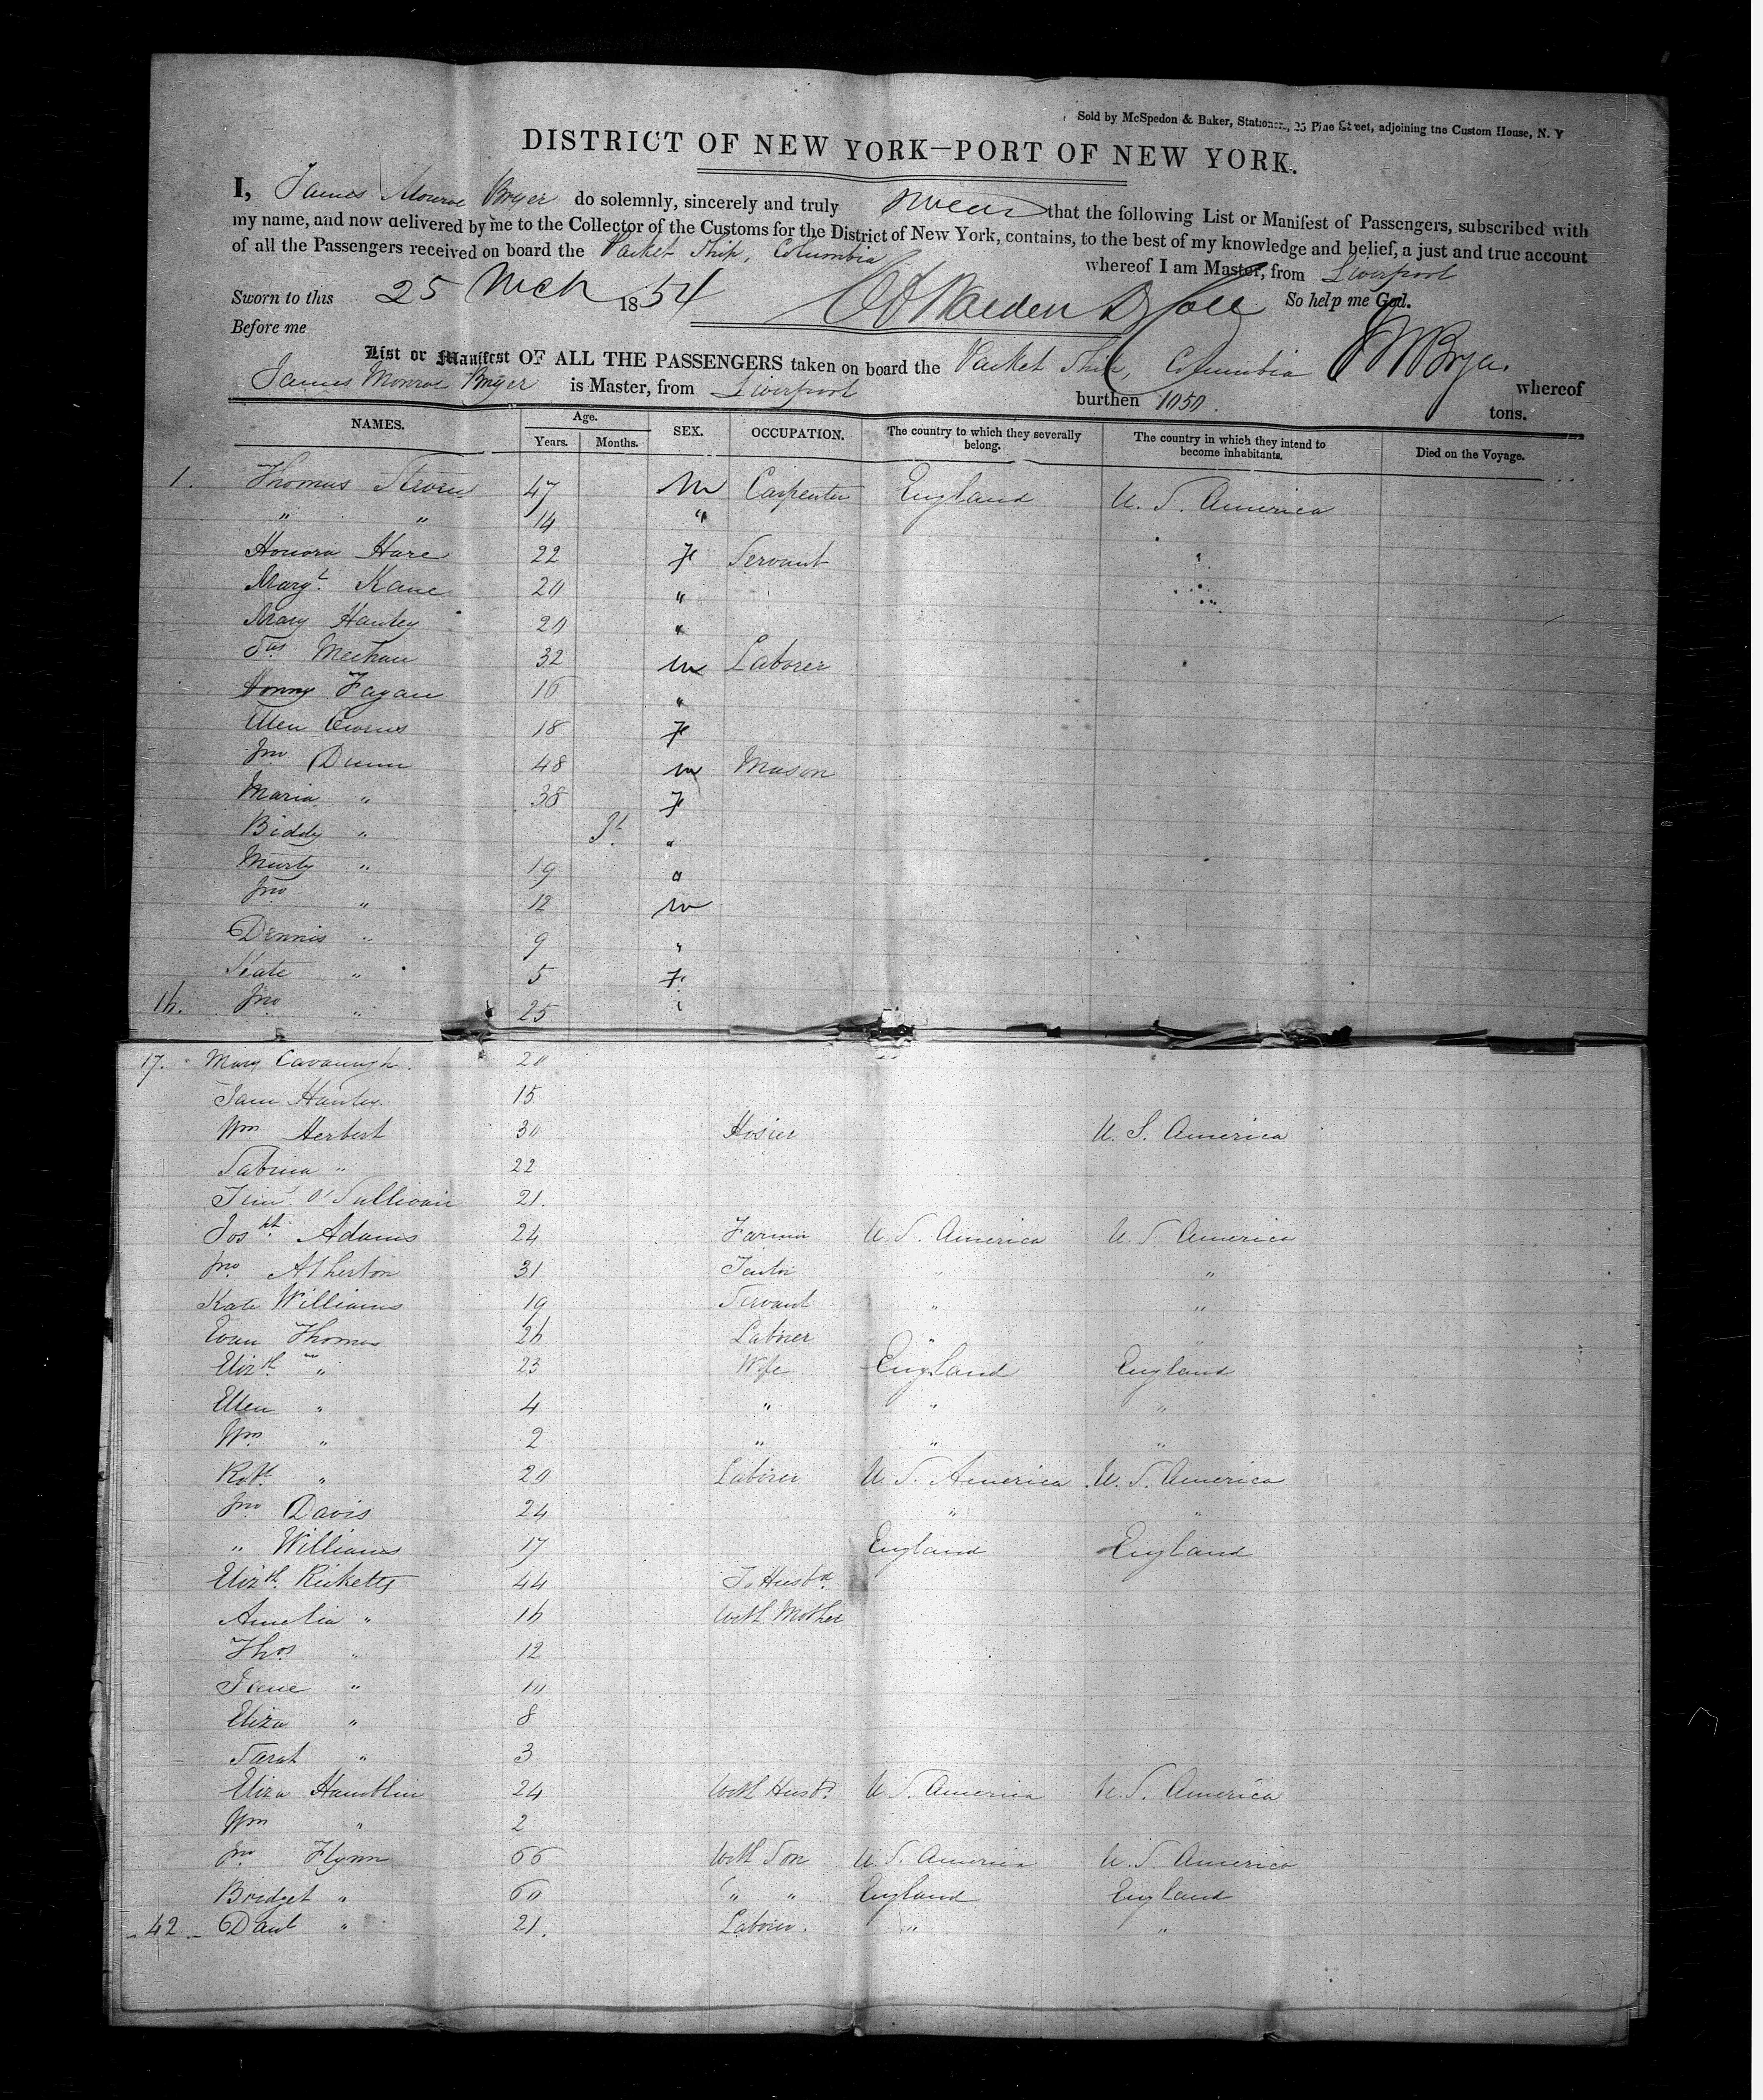 Sold by McSpedon & Baker, Stationers, 25 Pine Street, adjoining the Custom House, N. Y
DISTRICT OF NEW YORK—PORT OF NEW YORK.
I, James Monroe Bryer do solemnly, sincerely and truly swear that the following List or Manifest of Passengers, subscribed with
my name, and now delivered by me to the Collector of the Customs for the District of New York, contains, to the best of my knowledge and belief, a just and true account
of all the Passengers received on board the Packet Ship, Columbia whereof I am Master, from Liverpool
Sworn to this 25 Mch 1854 So help me God.
Before me
List or Manifest OF ALL THE PASSENGERS taken on board the Packet Ship, Columbia whereof
James Monroe Bryer is Master, from Liverpool burthen 1050. tons.
NAMES. Age. SEX. OCCUPATION. The country to which they severally belong. The country in which they intend to become inhabitants. Died on the Voyage.
Years. Months.
1. Thomas 47 M Carpenter England U. S. America
" " 14 "
Honora Hare 22 F Servant
Margt. Kane 20 "
Mary Hanley 20 "
Jas Meehan 32 M Laborer
Fagan 16 "
Ellen Owens 18 F
Jno Dunn 48 M Mason
Maria " 38 F
Biddy " "
Murty " 19 "
Jno " 12 M
Dennis " 9 "
Kate " 5 F
16. Jno " 25
17. Mary Cavanagh. 20
Jane Hanley. 15
Wm Herbert 30 Hosier U. S. America
Sabina " 22
Timy O'Sullivan 21.
Josph. Adams 24 Farmer U. S. America U. S. America
Jno. Atherton 31 " "
Kate Williams 19 Servant " "
Evan Thomas 26 Laborer " "
Elizth. " 23 Wife England England
Ellen " 4 " " "
Wm. " 2 " " "
Robt. " 20 Laborer U. S. America U. S. America
Jno. Davis 24 " "
" Williams 17 England England
Elizth. Ricketts 44 To Husbd.
Amelia " 16 with Mother
Thos. " 12
Jane " 10
Eliza " 8
Sarah " 3
Eliza Hamblin 24 with Husbd. U. S. America U. S. America
Wm " 2
Jno. Flynn 66 with Son U. S. America U. S. America
Bridget " 60 " " England England
42 Danl " 21. Laborer. " "